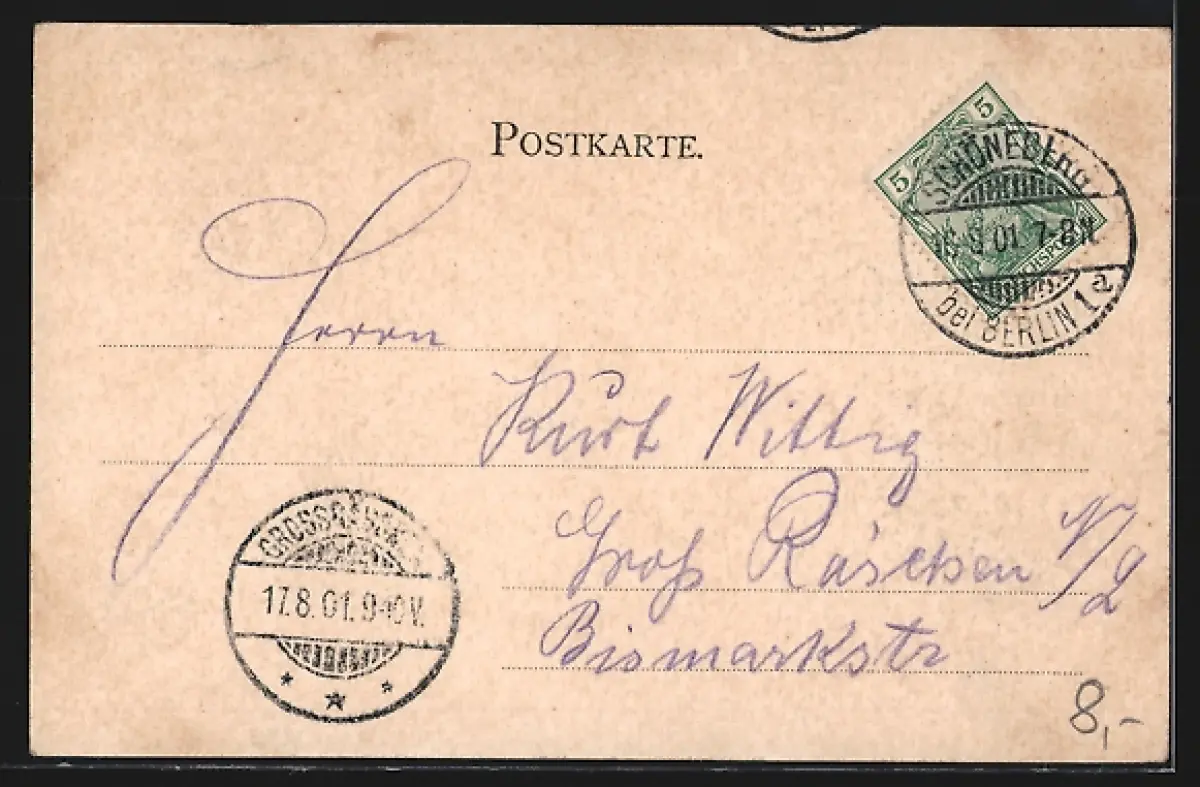 POSTKARTE.
5 5
SCHÖNEBERG
8.01. 7-8N.
bei BERLIN 1 a
Herrn
Kurt Wittig
Groß Räschen N/L
Bismarkstr
17.8.01. 9-10V.
8,-